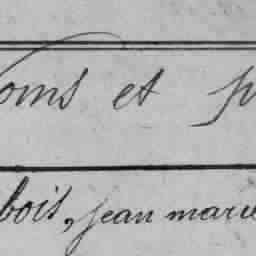 oms et p
bois, jean marie